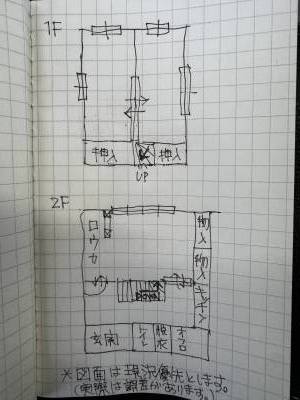 1F
押入
押入
UP
2F
ロウカ
物入
物入
キッチン
玄関
トイレ
脱衣
フロ
※図面は現況優先とします。
(実際は誤差があります。)